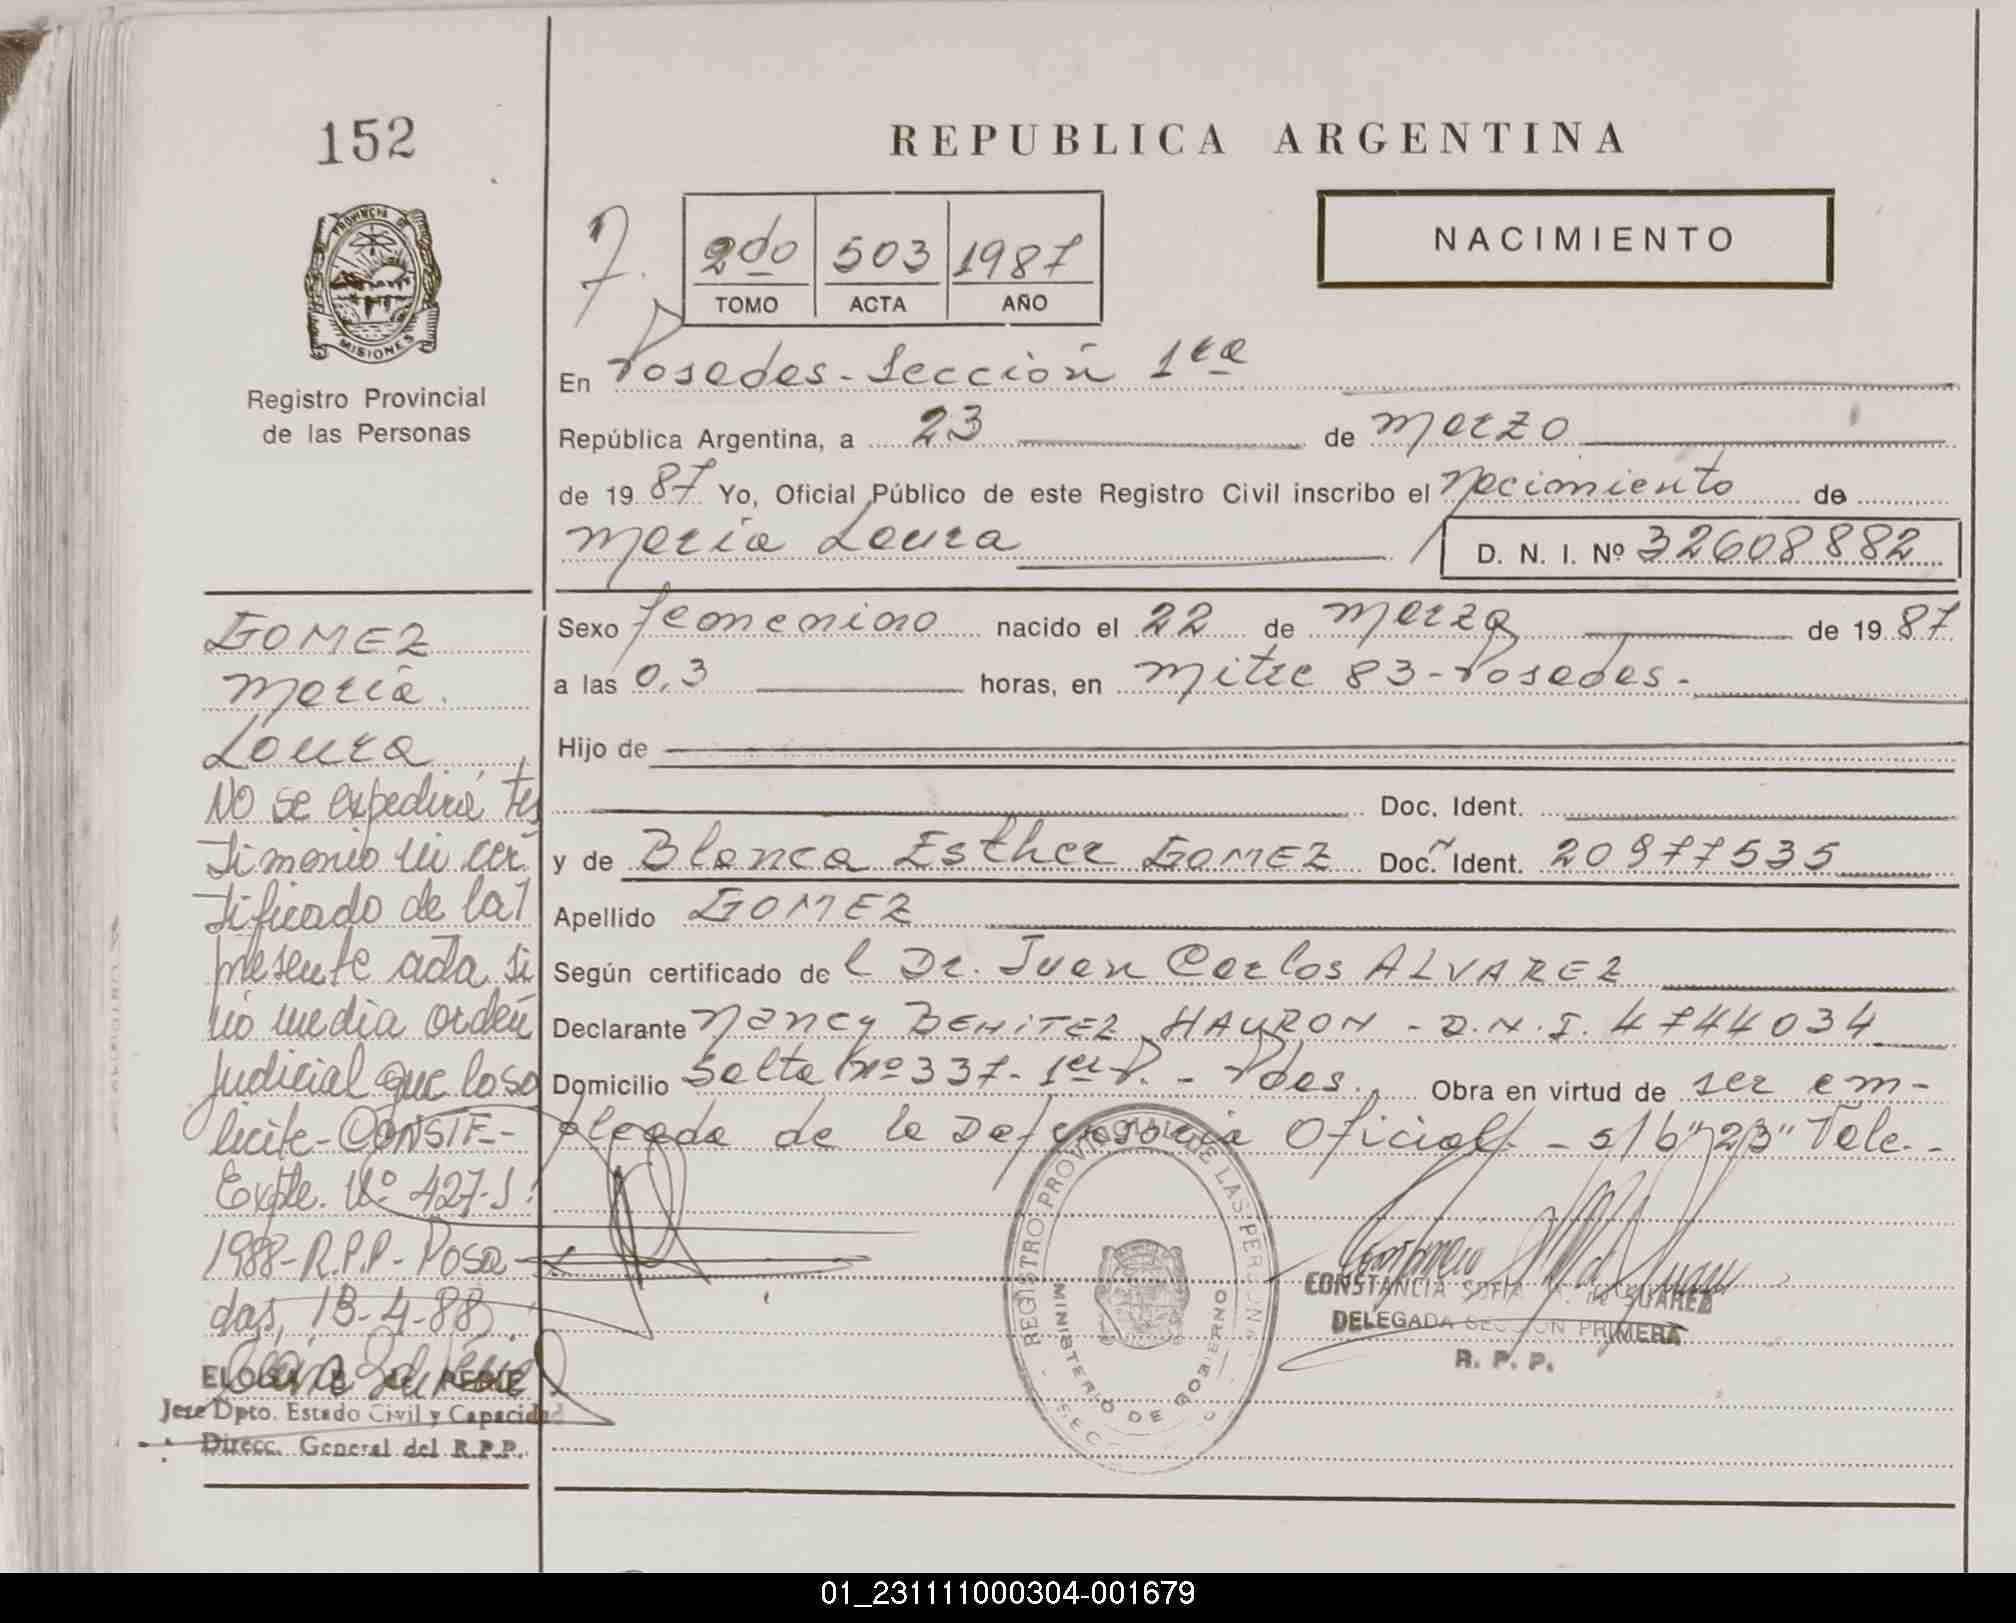 152
REPUBLICA ARGENTINA
NACIMIENTO
7.
2do 503 1987
TOMO ACTA AÑO
PROVINCIA DE
MISIONES
Registro Provincial
de las Personas
En Posadas - Sección 1ra
República Argentina, a 23 de Marzo
de 1987 Yo, Oficial Público de este Registro Civil inscribo el Nacimiento de
María Laura D. N. I. Nº 32608882
Sexo femenino nacido el 22 de Marzo de 1987
a las 0,3 horas, en Mitre 83 - Posadas -
Hijo de
Doc. Ident.
y de Blanca Esther GOMEZ Doc. Ident. 20977535
Apellido GOMEZ
Según certificado del Dr. Juan Carlos ALVAREZ
Declarante Nancy BENITEZ HAURON - D.N.I. 4744034
Domicilio Salta Nº 337 - 1er P. - Pdas. Obra en virtud de ser em-
pleada de la Defensoría Oficial - s/b "23" Vale. -
GOMEZ
María
Laura
No se expedirá tes
timonio ni cer
tificado de la
presente acta si
no media orden
judicial que lo so
licite - CONSTE -
Expte. Nº 427-J
1988 - R.P.P - Posa
das, 13-4-88
Jefe Dpto. Estado Civil y Capacidad
Direcc. General del R.P.P.
REGISTRO PROVINCIAL DE LAS PERSONAS
MINISTERIO DE GOBIERNO
CONSTANCIA SOFIA de SUAREZ
DELEGADA SECCION PRIMERA
R. P. P.
01_231111000304-001679